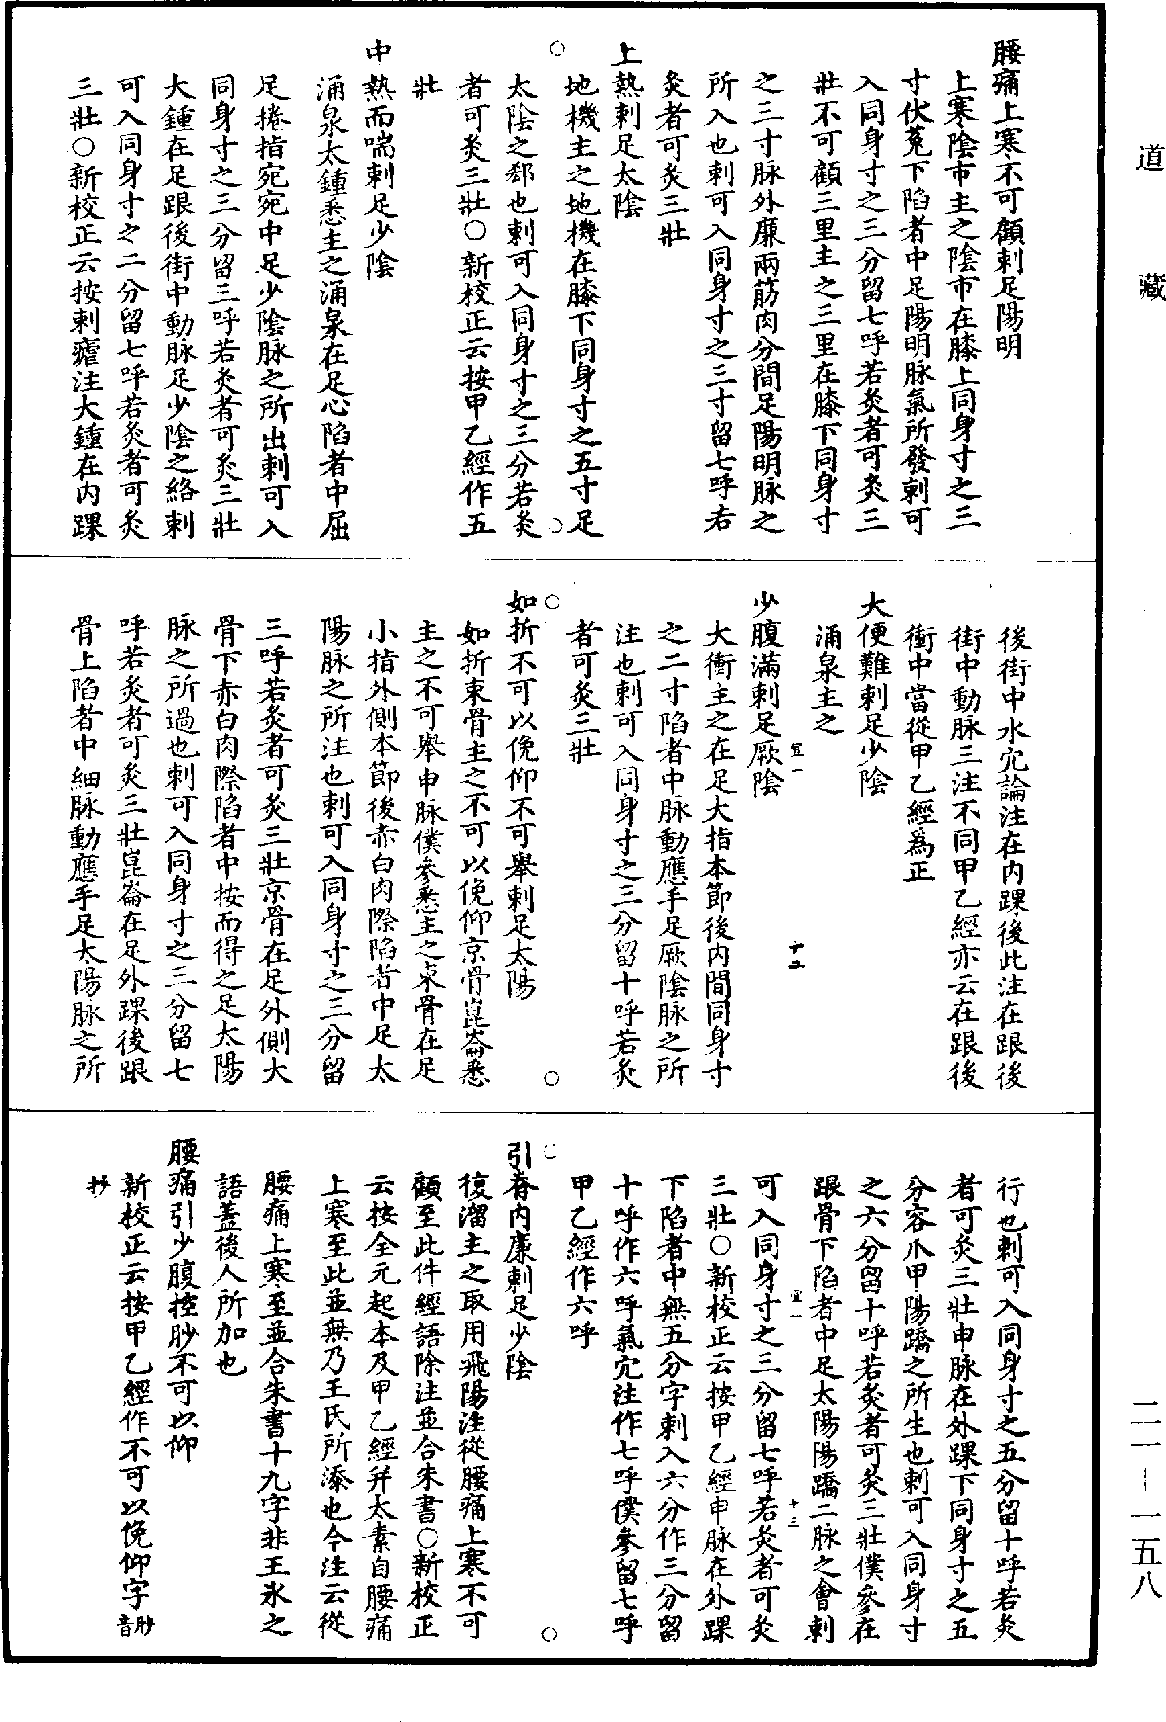 道藏
腰痛上寒不可顧刺足陽明
上寒陰市主之陰市在膝上同身寸之三
寸伏菟下陷者中足陽明脉氣所發刺可
入同身寸之三分留七呼若灸者可灸三
壯不可顧三里主之三里在膝下同身寸
之三寸脉外廉兩筋肉分間足陽明脉之
所入也刺可入同身寸之三寸留七呼右
灸者可灸三壯
上熱刺足太陰
地機主之地機在膝下同身寸之五寸足
太陰之郄也刺可入同身寸之三分若灸
者可灸三壯○新校正云按甲乙經作五
壯
中熱而喘刺足少陰
涌泉太鍾悉主之涌泉在足心陷者中屈
足捲指宛宛中足少陰脉之所出刺可入
同身寸之三分留三呼若灸者可灸三壯
大鍾在足跟後街中動脉足少陰之絡刺
可入同身寸之二分留七呼若灸者可灸
三壯○新校正云按刺瘧注大鍾在内踝
後街中水穴論注在内踝後此注在跟後
街中動脉三注不同甲乙經亦云在跟後
衝中當從甲乙經爲正
大便難刺足少陰
涌泉主之
少腹滿刺足厥陰
大衝主之在足大指本節後内間同身寸
之二寸陷者中脉動應手足厥陰脉之所
注也刺可入同身寸之三分留十呼若灸
者可灸三壯
如折不可以俛仰不可舉刺足太陽
如折束骨主之不可以俛仰京骨崑崙悉
主之不可舉申脉僕參悉主之束骨在足
小指外側本節後赤白肉際陷者中足太
陽脉之所注也刺可入同身寸之三分留
三呼若灸者可灸三壯京骨在足外側大
骨下赤白肉際陷者中按而得之足太陽
脉之所過也刺可入同身寸之三分留七
呼若灸者可灸三壯崑崙在足外踝後跟
骨上陷者中細脉動應手足太陽脉之所
行也刺可入同身寸之五分留十呼若灸
者可灸三壯申脉在外踝下同身寸之五
分容爪甲陽蹻之所生也刺可入同身寸
之六分留十呼若灸者可灸三壯僕參在
跟骨下陷者中足太陽陽蹻二脉之會刺
可入同身寸之三分留七呼若灸者可灸
三壯○新校正云按甲乙經申脉在外踝
下陷者中無五分字刺入六分作三分留
十呼作六呼氣穴注作七呼僕參留七呼
甲乙經作六呼
引脊内廉刺足少陰
復溜主之取用飛陽注從腰痛上寒不可
顧至此件經語除注並合朱書○新校正
云按全元起本及甲乙經并太素自腰痛
上寒至此並無乃王氏所添也今注云從
腰痛上寒至並合朱書十九字非王冰之
語蓋後人所加也
腰痛引少腹控䏚不可以仰
新校正云按甲乙經作不可以俛仰字䏚音
抄
二一—一五八